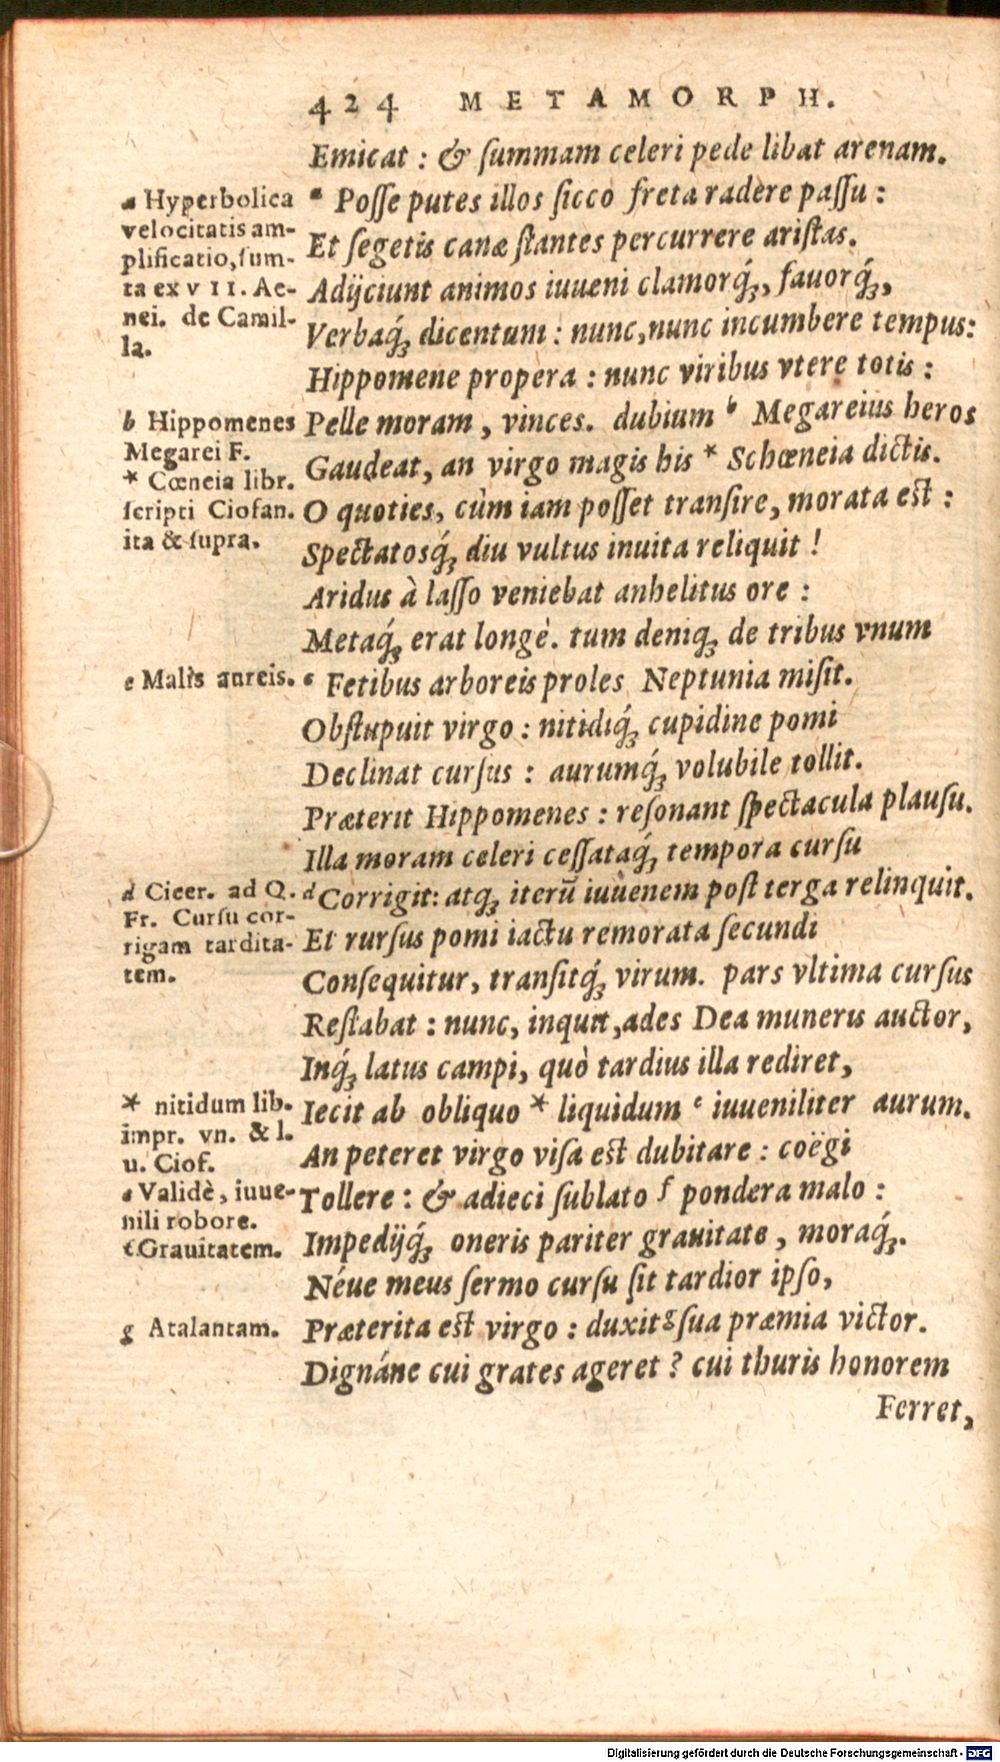 424 METAMORPH.
Emicat : & ſummam celeri pede libat arenam.
a Poſſe putes illos ſicco freta radere paſſu :
Et ſegetis canæ ſtantes percurrere ariſtas.
Adijciunt animos iuueni clamorq́ꝫ, fauorq́ꝫ,
Verbaq́ꝫ dicentum : nunc, nunc incumbere tempus:
Hippomene propera : nunc viribus vtere totis :
Pelle moram, vinces. dubium b Megareius heros
Gaudeat, an virgo magis his * Schœneia dictis.
O quoties, cùm iam poſſet tranſire, morata est :
Spectatosq́ꝫ diu vultus inuita reliquit !
Aridus à laſſo veniebat anhelitus ore :
Metaq́ꝫ erat longè. tum deniqꝫ de tribus vnum
c Fetibus arboreis proles Neptunia miſit.
Obſtupuit virgo : nitidiq́ꝫ cupidine pomi
Declinat curſus : aurumq́ꝫ volubile tollit.
Præterit Hippomenes : reſonant ſpectacula plauſu.
Illa moram celeri ceſſataq́ꝫ tempora curſu
d Corrigit: atqꝫ iterũ iuuenem poſt terga relinquit.
Et rurſus pomi iactu remorata ſecundi
Conſequitur, tranſitq́ꝫ virum. pars vltima curſus
Reſtabat : nunc, inquit, ades Dea muneris auctor,
Inq́ꝫ latus campi, quò tardius illa rediret,
Iecit ab obliquo * liquidum e iuueniliter aurum.
An peteret virgo viſa est dubitare : coëgi
Tollere : & adieci ſublato f pondera malo :
Impedijq́ꝫ oneris pariter grauitate, moraq́ꝫ.
Néue meus ſermo curſu ſit tardior ipſo,
Præterita est virgo : duxit g ſua præmia victor.
Dignáne cui grates ageret ? cui thuris honorem
Ferret,
a Hyperbolica
velocitatis am-
plificatio, ſum-
ta ex VII. Ae-
nei. de Camil-
la.
b Hippomenes
Megarei F.
* Cœneia libr.
ſcripti Ciofan.
ita & ſupra.
c Malis aureis.
d Cicer. ad Q.
Fr. Curſu cor-
rigam tardita-
tem.
* nitidum lib.
impr. vn. & l.
u. Cioſ.
e Validè, iuue-
nili robore.
f Grauitatem.
g Atalantam.
Digitalisierung gefördert durch die Deutsche Forschungsgemeinschaft - DFG